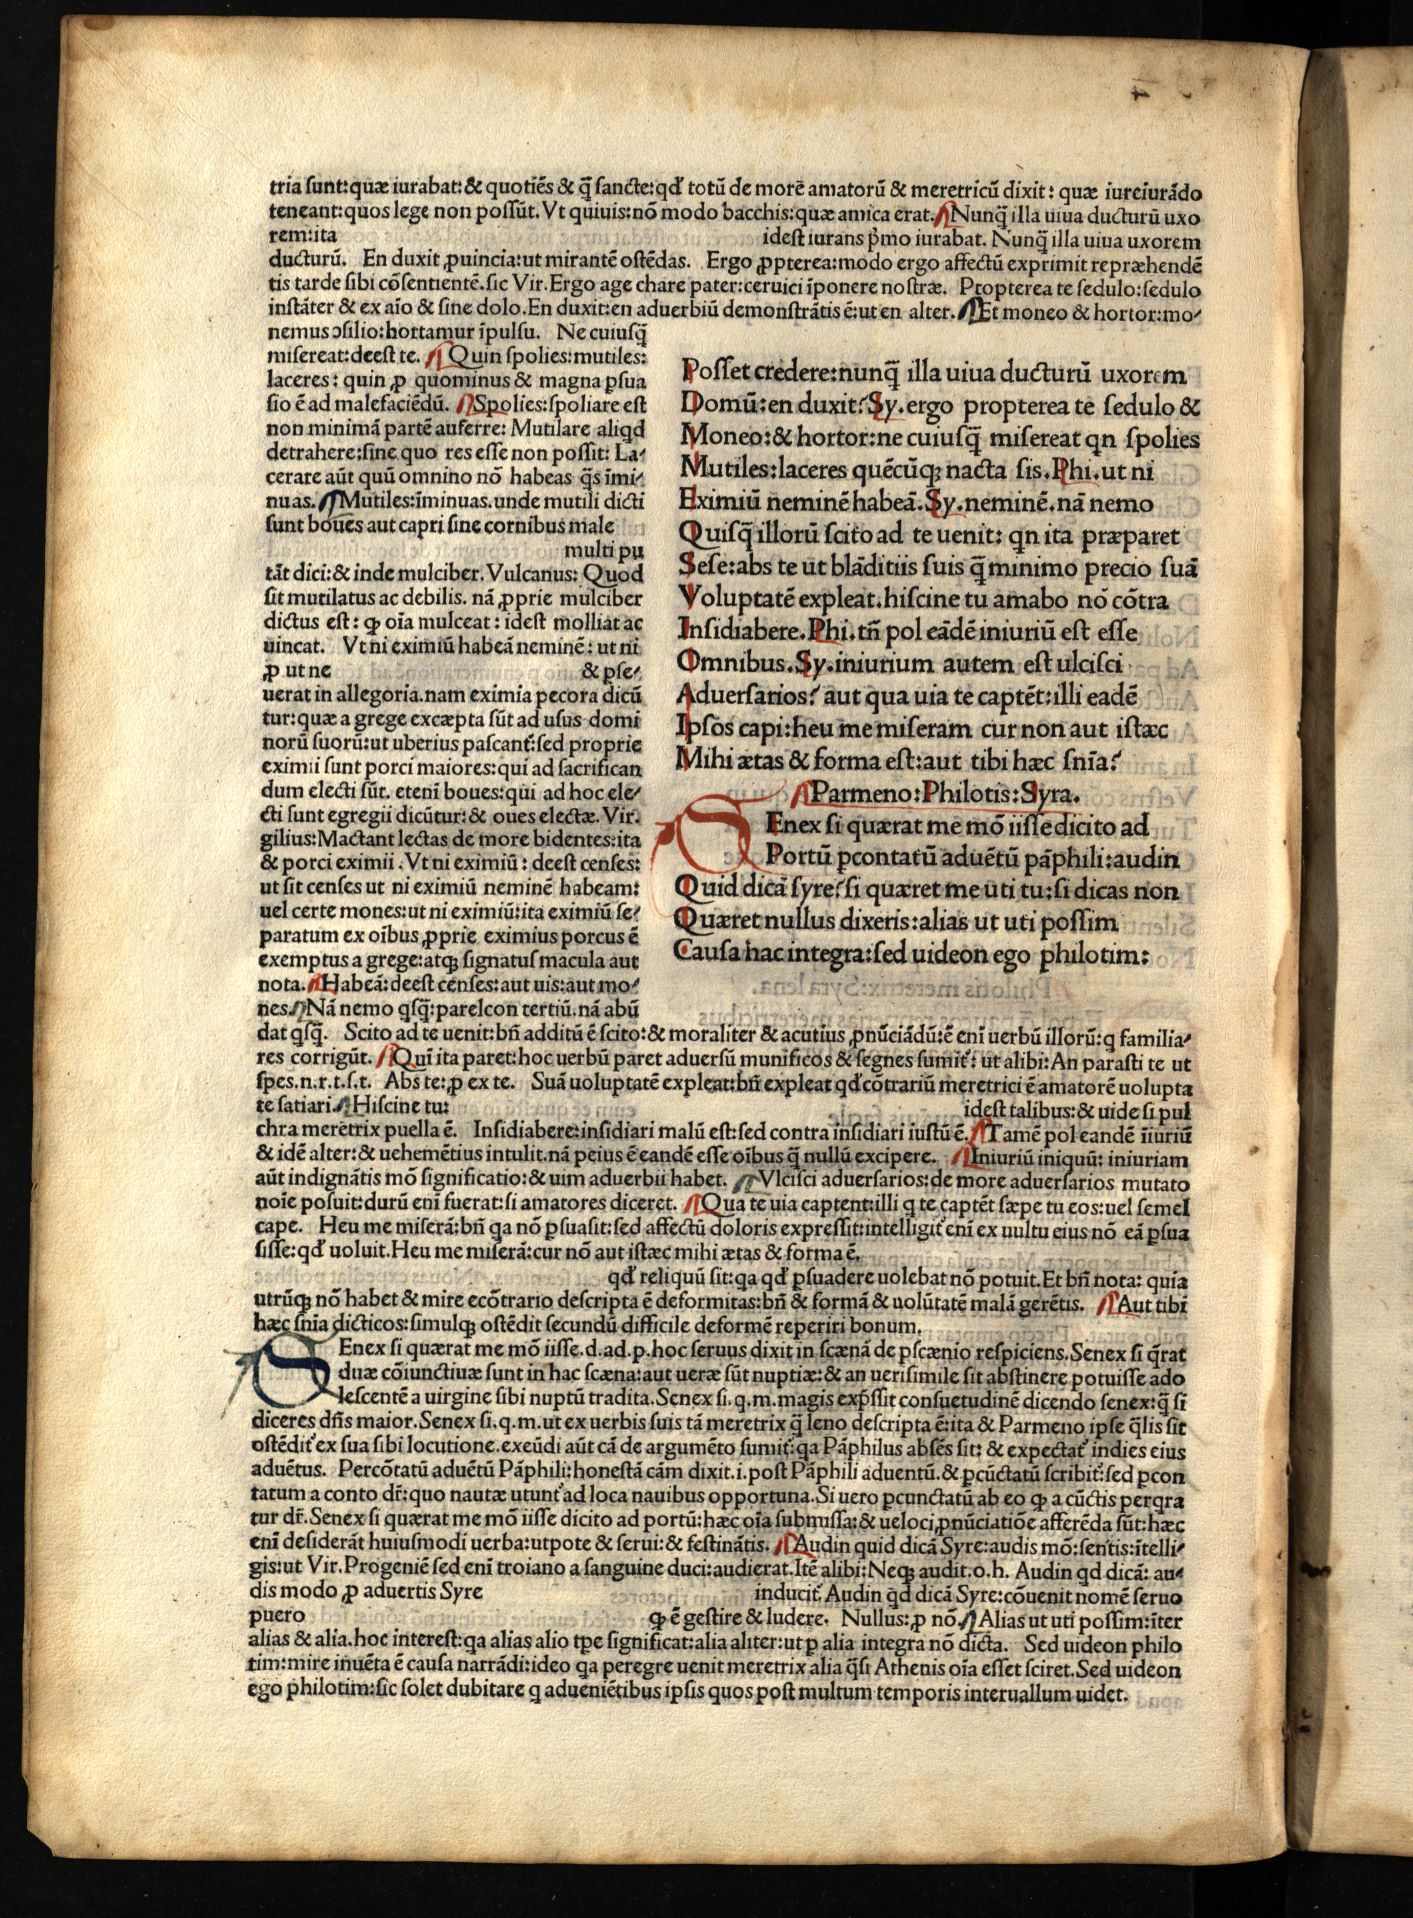 tria sunt:quæ iurabat:& quotiẽs & q̃ sancte:qđ totũ de morẽ amatorũ & meretricũ dixit: quæ iureiurãdo
teneant:quos lege non possũt. Vt quiuis:nõ modo bacchis:quæ amica erat. ¶Nunq̃ illa uiua ducturũ uxo
rem:ita idest iurans p̃mo iurabat. Nunq̃ illa uiua uxorem
ducturũ. En duxit ꝓuincia:ut mirantẽ ostẽdas. Ergo ꝓpterea:modo ergo affectũ exprimit repræhendẽ
tis tarde sibi cõsentientẽ. sic Vir. Ergo age chare pater:ceruici ĩponere nostræ. Propterea te sedulo:sedulo
instãter & ex aĩo & sine dolo. En duxit:en aduerbiũ demonstrãtis ẽ:ut en alter. ¶Et moneo & hortor:mo-
nemus ↄsilio:hortamur ĩpulsu. Ne cuiusq̃
misereat:deest te. ¶Quin spolies:mutiles:
laceres: quin ꝓ quominus & magna ꝑsua
sio ẽ ad malefaciẽdũ. ¶Spolies:spoliare est
non minimã partẽ auferre: Mutilare aliqd
detrahere:sine quo res esse non possit: La-
cerare aũt quũ omnino nõ habeas q̃s ĩmi-
nuas. ¶Mutiles:ĩminuas.unde mutili dicti
sunt boues aut capri sine cornibus male
multi pu
tãt dici:& inde mulciber. Vulcanus: Quod
sit mutilatus ac debilis. nã ꝓprie mulciber
dictus est: ꝙ oĩa mulceat: idest molliat ac
uincat. Vt ni eximiũ habeã neminẽ: ut ni
ꝓ ut ne & ꝑse-
uerat in allegoria.nam eximia pecora dicũ
tur:quæ a grege excæpta sũt ad usus domi
norũ suorũ:ut uberius pascant᷑:sed proprie
eximii sunt porci maiores:qui ad sacrifican
dum electi sũt. etenĩ boues:qui ad hoc ele-
cti sunt egregii dicũtur:& oues electæ. Vir.
gilius:Mactant lectas de more bidentes:ita
& porci eximii. Vt ni eximiũ: deest censes:
ut sit censes ut ni eximiũ neminẽ habeam:
uel certe mones:ut ni eximiũ:ita eximiũ se-
paratum ex oĩbus ꝓprie eximius porcus ẽ
exemptus a grege:atqꝫ signatus macula aut
nota. ¶Habeã:deest censes:aut uis:aut mo-
nes. ¶Nã nemo qsq̃:parelcon tertiũ.nã abũ
Posset credere:nunq̃ illa uiua ducturũ uxorem
Domũ:en duxit? Sy. ergo propterea te sedulo &
Moneo:& hortor:ne cuiusq̃ misereat qn spolies
Mutiles:laceres quẽcũqꝫ nacta sis. Phi. ut ni
Eximiũ neminẽ habeã. Sy. neminẽ. nã nemo
Quisq̃ illorũ scito ad te uenit: qn ita præparet
Sese:abs te ut blãditiis suis q̃ minimo precio suã
Voluptatẽ expleat. hiscine tu amabo nõ cõtra
Insidiabere. Phi. tñ pol eãdẽ iniuriũ est esse
Omnibus. Sy. iniurium autem est ulcisci
Aduersarios? aut qua uia te captẽt:illi eadẽ
Ipsos capi:heu me miseram cur non aut istæc
Mihi ætas & forma est:aut tibi hæc sñia?
¶Parmeno: Philotis: Syra.
SEnex si quærat me mõ iisse dicito ad
Portũ ꝑcontatũ aduẽtũ pãphili:audin
Quid dicã syre? si quæret me uti tu:si dicas non
Quæret nullus dixeris:alias ut uti possim
Causa hac integra:sed uideon ego philotim:
dat qsq̃. Scito ad te uenit:bñ additũ ẽ scito:& moraliter & acutius ꝓnũciãdũ:ẽ enĩ uerbũ illorũ:q familia-
res corrigũt. ¶Quĩ ita paret:hoc uerbũ paret aduersũ munificos & segnes sumit᷑: ut alibi:An parasti te ut
spes.n.r.t.s.t. Abs te:ꝓ ex te. Suã uoluptatẽ expleat:bñ expleat qđ cõtrariũ meretrici ẽ amatorẽ uolupta
te satiari. ¶Hiscine tu: idest talibus:& uide si pul
chra meretrix puella ẽ. Insidiabere:insidiari malũ est:sed contra insidiari iustũ ẽ. ¶Tamẽ pol eandẽ ĩiuriũ
& idẽ alter:& uehemẽtius intulit.nã peius ẽ eandẽ esse oĩbus q̃ nullũ excipere. ¶Iniuriũ iniquũ: iniuriam
aũt indignãtis mõ significatio:& uim aduerbii habet. ¶Vlcisci aduersarios:de more aduersarios mutato
noĩe posuit:durũ enĩ fuerat:si amatores diceret. ¶Qua te uia captent:illi q te captẽt sæpe tu eos:uel semel
cape. Heu me miserã:bñ qa nõ ꝑsuasit:sed affectũ doloris expressit:intelligit᷑ enĩ ex uultu eius nõ eã ꝑsua
sisse:qđ uoluit. Heu me miserã:cur nõ aut istæc mihi ætas & forma ẽ.
qđ reliquũ sit:qa qđ ꝑsuadere uolebat nõ potuit. Et bñ nota: quia
utrũqꝫ nõ habet & mire ecõtrario descripta ẽ deformitas:bñ & formã & uolũtatẽ malã gerẽtis. ¶Aut tibĩ
hæc sñia dicticos:simulqꝫ ostẽdit secundũ difficile deformẽ reperiri bonum.
SEnex si quærat me mõ iisse.d.ad.p.hoc seruus dixit in scænã de ꝑscænio respiciens. Senex si q̃rat
duæ cõiunctiuæ sunt in hac scæna:aut ueræ sũt nuptiæ:& an uerisimile sit abstinere potuisse ado
lescentẽ a uirgine sibi nuptũ tradita. Senex si.q.m.magis exp̃ssit consuetudinẽ dicendo senex:q̃ si
diceres dñs maior. Senex si.q.m.ut ex uerbis suis tã meretrix q̃ leno descripta ẽ:ita & Parmeno ipse q̃lis sit
ostẽdit᷑ ex sua sibi locutione.exeũdi aũt cã de argumẽto sumit᷑:qa Pãphilus absẽs sit: & expectat᷑ indies eius
aduẽtus. Percõtatũ aduẽtũ Pãphili:honestã cãm dixit.i.post Pãphili aduentũ.& ꝑcũctatũ scribit᷑:sed ꝑcon
tatum a conto dr̃:quo nautæ utunt᷑ ad loca nauibus opportuna. Si uero ꝑcunctatũ ab eo ꝙ a cũctis perqra
tur dr̃. Senex si quærat me mõ iisse dicito ad portũ:hæc oĩa submissa:& ueloci ꝓnũciatiõe afferẽda sũt:hæc
enĩ desiderãt huiusmodi uerba:utpote & serui:& festinãtis. ¶Audin quid dicã Syre:audis mõ:sentis:ĩtelli-
gis:ut Vir. Progeniẽ sed enĩ troiano a sanguine duci:audierat. Itẽ alibi: Neqꝫ audit.o.h. Audin qd dicã: au-
dis modo ꝓ aduertis Syre inducit᷑. Audin q̃d dicã Syre:cõuenit nomẽ seruo
puero ꝙ ẽ gestire & ludere. Nullus:ꝓ nõ. ¶Alias ut uti possim:ĩter
alias & alia.hoc interest:qa alias alio tꝑe significat:alia aliter:ut ꝑ alia integra nõ dicta. Sed uideon philo
tim:mire inuẽta ẽ causa narrãdi:ideo qa peregre uenit meretrix alia q̃si Athenis oĩa esset sciret. Sed uideon
ego philotim:sic solet dubitare q adueniẽtibus ipsis quos post multum temporis interuallum uidet.